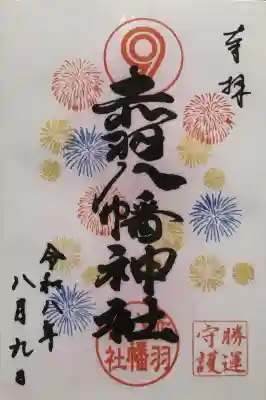 奉拝
赤羽八幡神社
令和八年
八月九日
勝運
守護